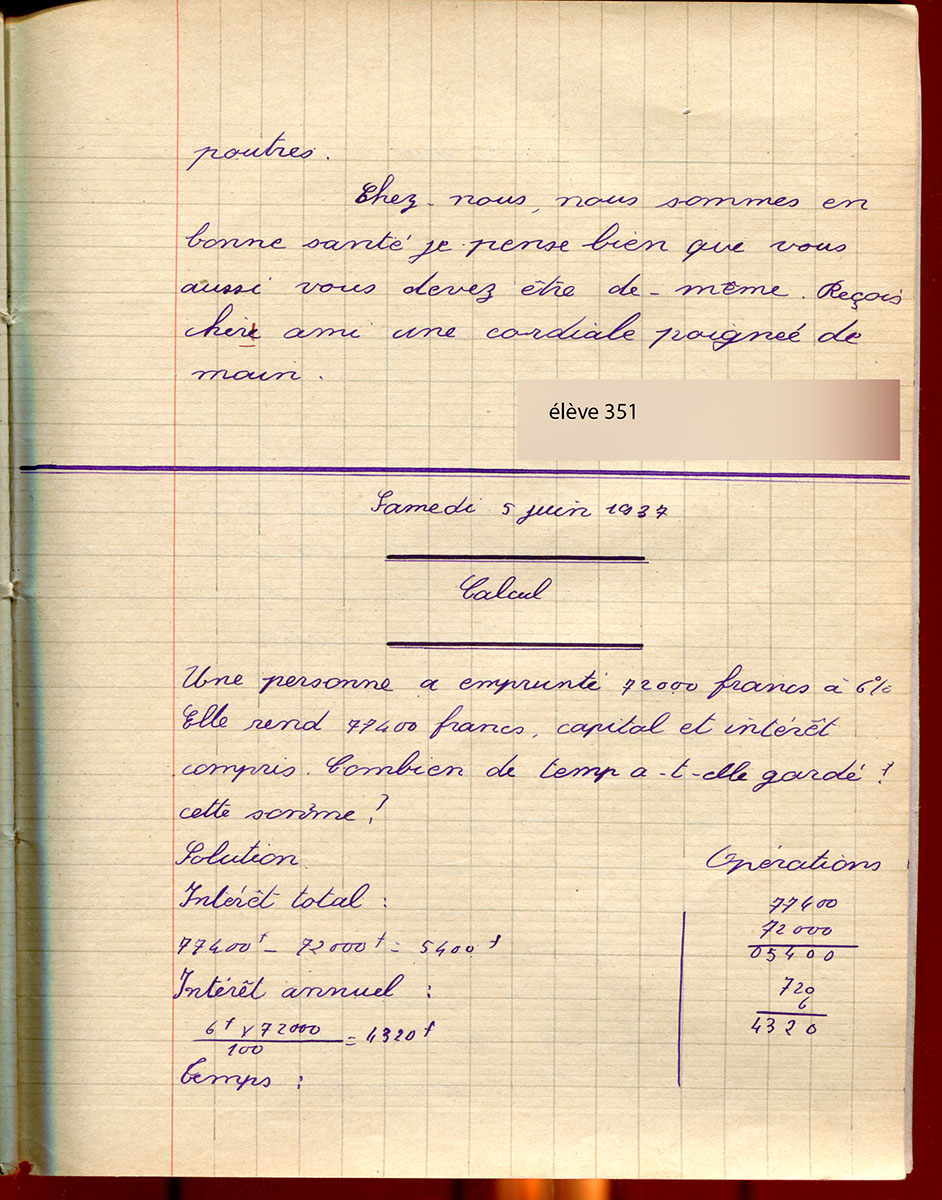 poutres.
Chez-nous, nous sommes en
bonne santé je pense bien que vous
aussi vous devez être de-même. Reçois
chère ami une cordiale poigneé de
main.
élève 351
Samedi 5 juin 1937
Calcul
Une personne a emprunté 72000 francs à 6%
Elle rend 77400 francs, capital et intérêt
compris. Combien de temp a-t-elle gardé ?
cette somme ?
Solution
Opérations
Intérêt total :
77400f - 72000f = 5400f
Intérêt annuel :
6f x 72000
100
= 4320f
Temps :
77400
72000
05400
720
6
4320